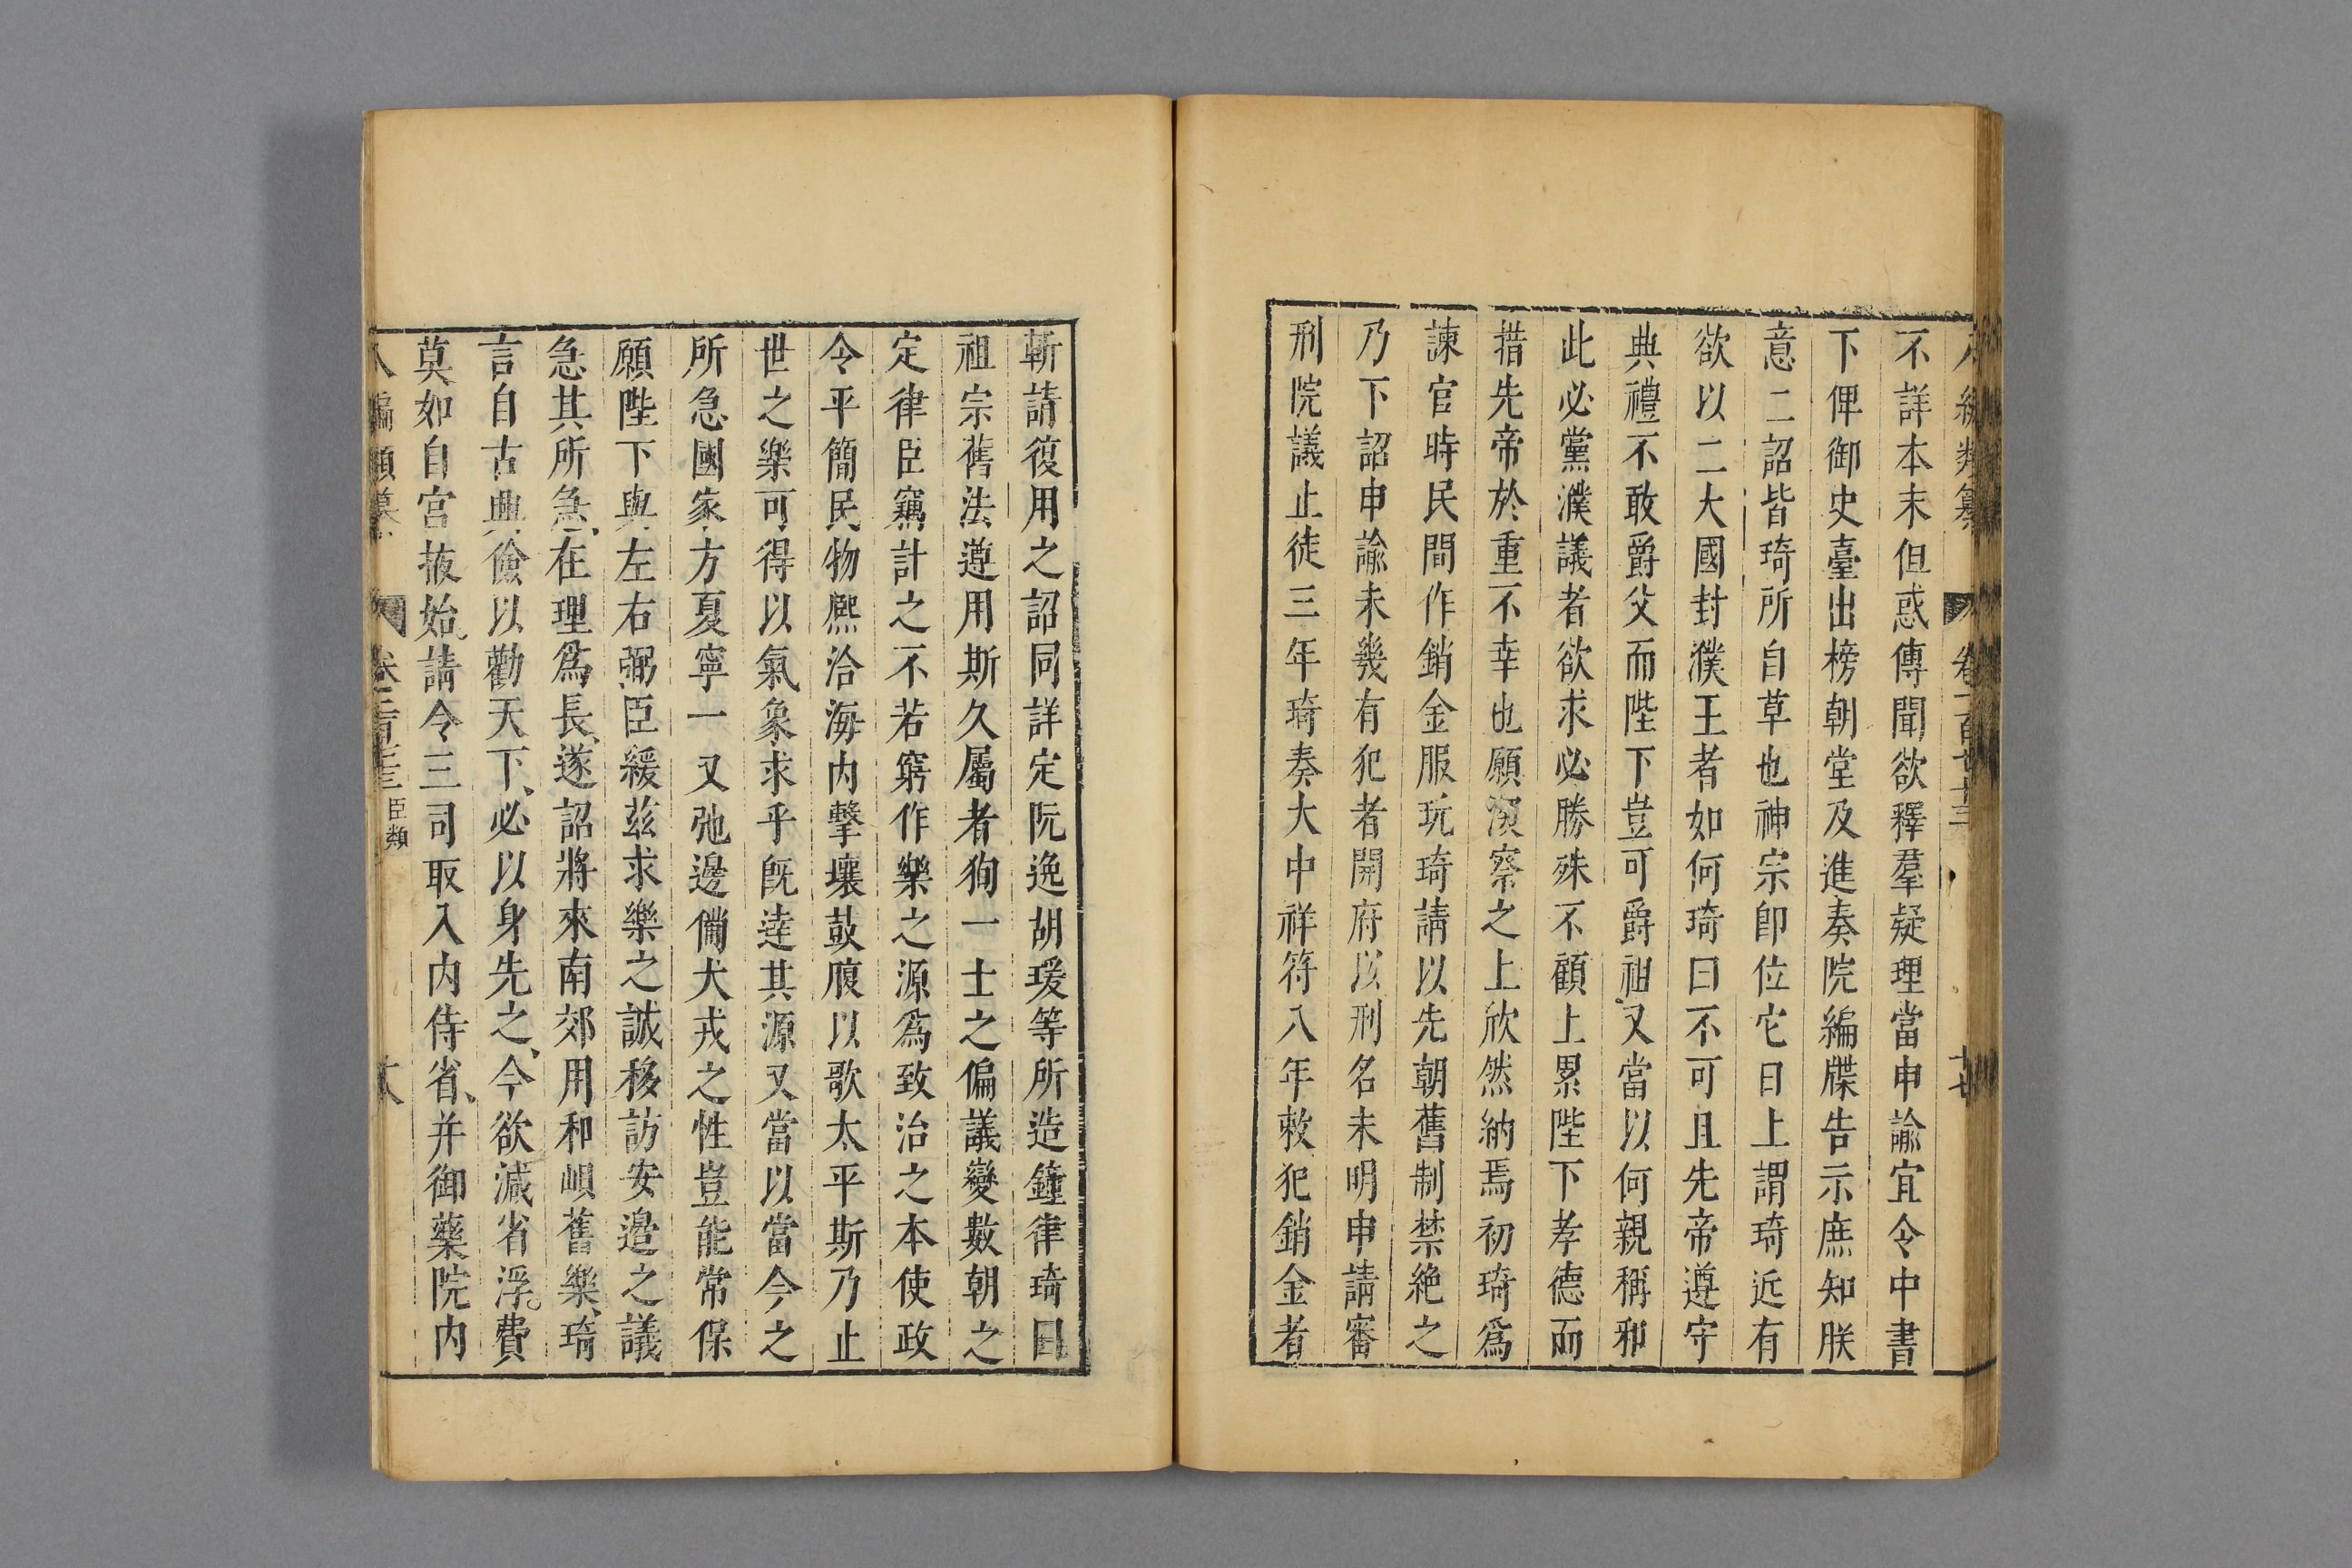 不詳本末但惑傳聞欲釋羣疑理當申諭宜令中書
下俾御史臺出榜朝堂及進奏院編牒告示庶知朕
意二詔皆琦所自草也神宗卽位它日上謂琦近有
欲以二大國封濮王者如何琦曰不可且先帝遵守
典禮不敢爵父而陛下豈可爵祖又當以何親稱和
此必黨濮議者欲求必勝殊不顧上累陛下孝德而
措先帝於重不幸也願深察之上欣然納焉初琦爲
諫官時民間作銷金服玩琦請以先朝舊制禁絶之
乃下詔申諭未幾有犯者開府以刑名未明申請審
刑院議止徒三年琦奏大中祥符八年敕犯銷金者
斬請復用之詔同詳定阮逸胡瑗等所造鐘律琦曰
祖宗舊法遵用斯久屬者徇一士之偏議變數朝之
定律臣竊計之不若窮作樂之源爲致治之本使政
令平簡民物熈洽海內擊壤鼓腹以歌太平斯乃止
世之樂可得以氣象求乎旣達其源又當以當今之
所急國家方夏寧一又弛邊備犬戎之性豈能常保
願陛下與左右弼臣緩茲求樂之誠移訪安邊之議
急其所急在理爲長遂詔將來南郊用和峴舊樂琦
言自古典儉以勸天下必以身先之今欲減省浮費
莫如自宮掖始請令三司取入內侍省并御藥院內
八編類纂 卷一百三十三 臣類 十八